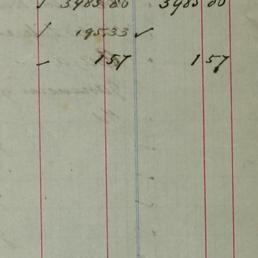 3985.80 3985 80
195.33 ✓
157 157